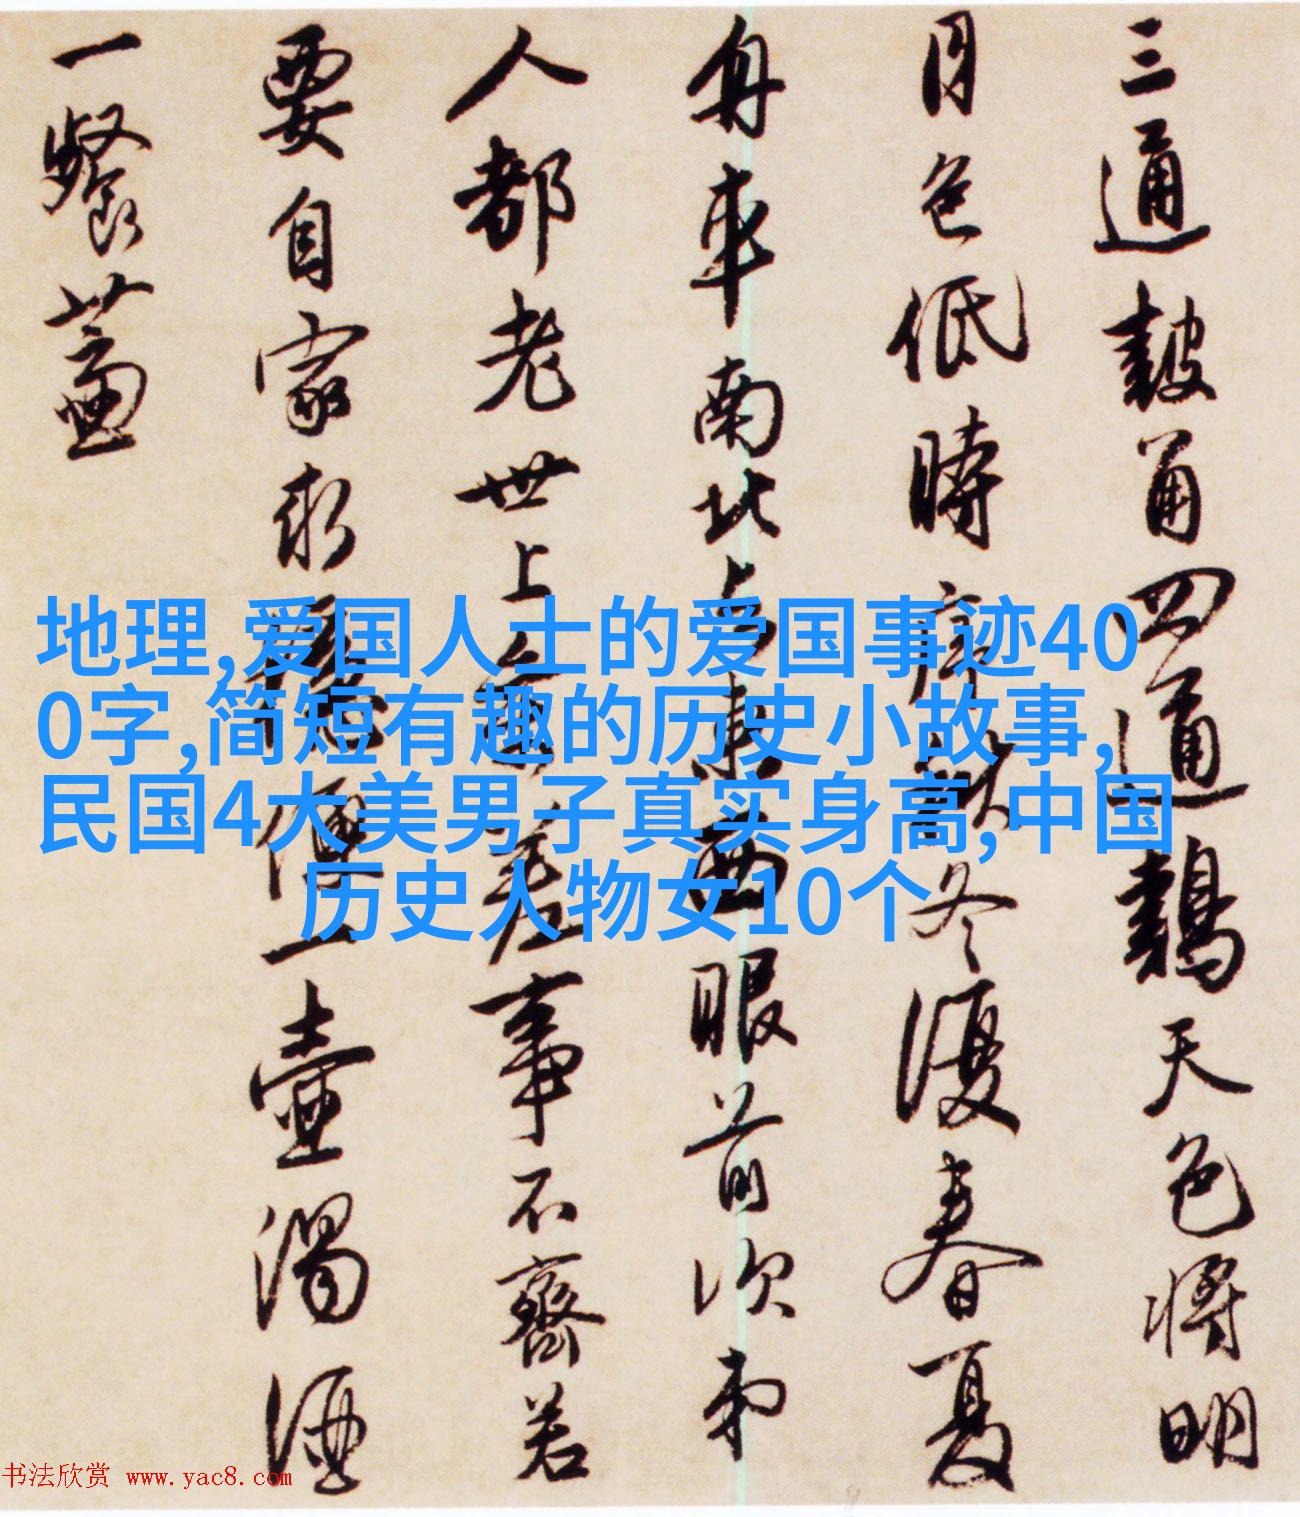 三通鼓角四通鷄天色將明
月色低時序秋冬復春夏
舟車南北與東西眼前次第
人都老世上參差事不齊若
要自家求穩便一壺濁酒
一餐虀
地理,爱国人士的爱国事迹40
0字,简短有趣的历史小故事,
民国4大美男子真实身高,中国
历史人物女10个
书法欣赏 www.yac8.com